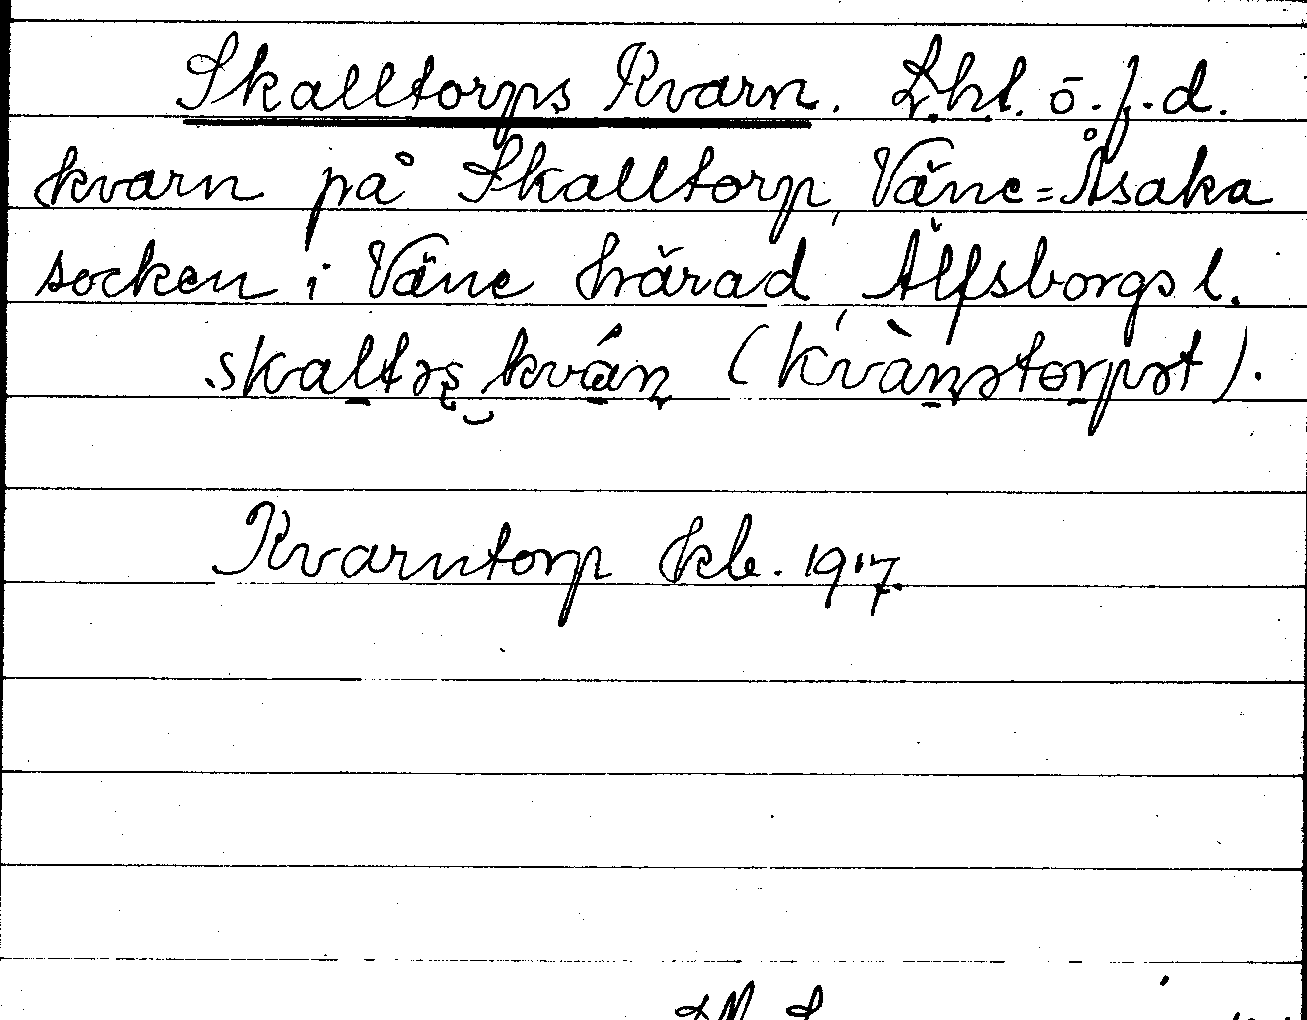 Skalltorps Kvarn. L.hl. o. f.d.
kvarn på Skalltorp, Väne=Åsaka
socken i Väne härad, Älfsborgs l.
skaltəş kván (kvànstorpət).
Kvarntorp Ekb. 1917.